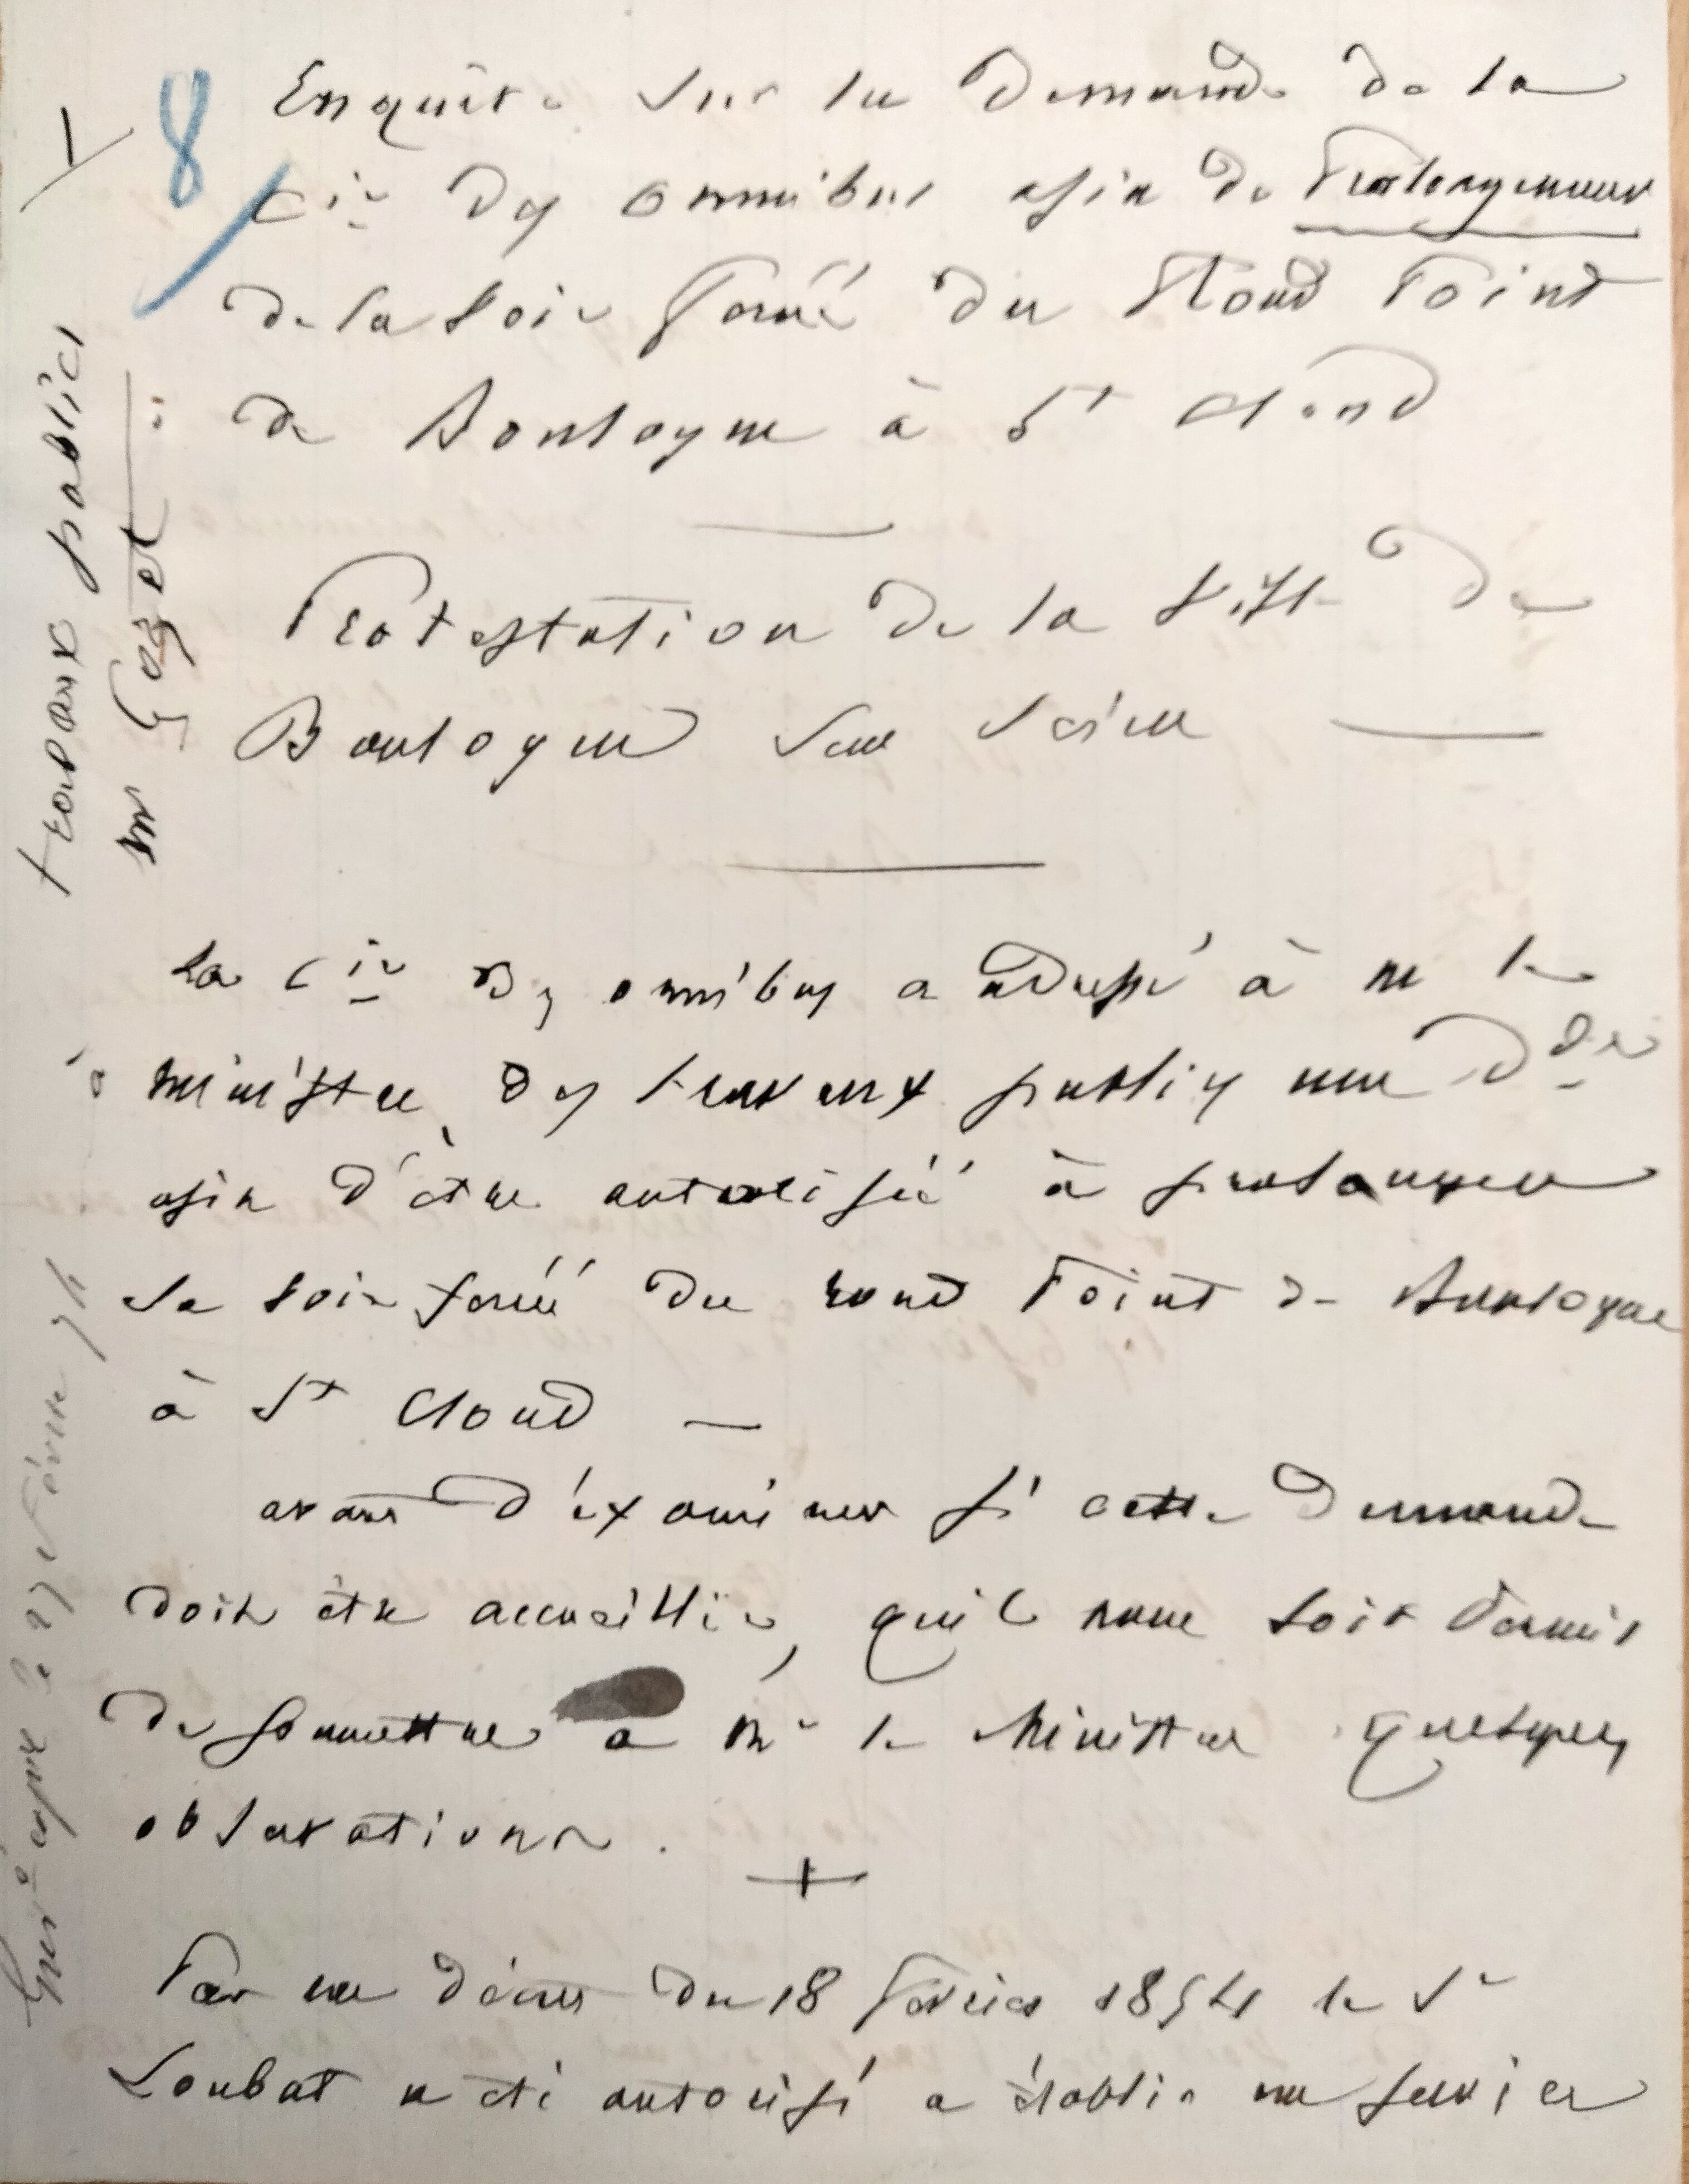 8
Enquête sur la Demande de la
Cie des omnibus afin de Prolongement
de la voie ferrée du Rond Point
de Boulogne à St Cloud
Protestation de la Ville de
Boulogne sur Seine
La Cie des omnibus a adressé à m le
ministre des travaux publics une Dde
afin d'être autorisée à prolonger
sa voie ferrée du rond Point de Boulogne
à St Cloud —
avant d'examiner si cette Demande
doit être accueillie, qu'il nous soit Permis
de soumettre a Mr le Ministre quelques
observations.
Par un décret du 18 février 1854 le Sr
Loubat a été autorisé a établir un service
travaux publics